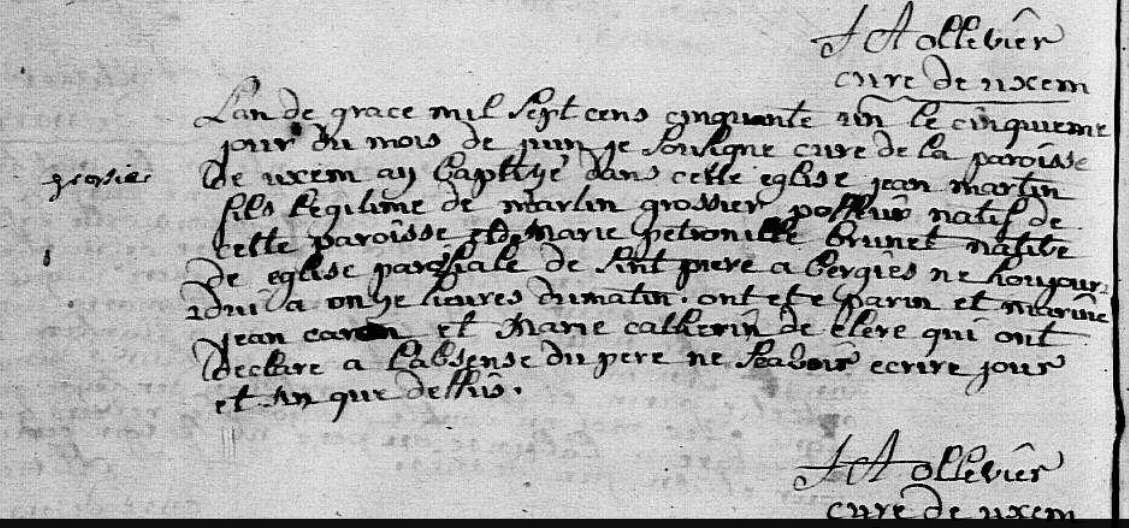 J A ollevier
cure de uxem
Lan de grace mil Sept cens cinquante un le cinquieme
jour du mois de juin je Sousigne cure de la paroisse
grossier
de uxem ay baptizé dans cette eglise jean martin
fils legitime de martin grossier natif de
cette paroisse et de Marie petronille brunet native
de eglise parossiale de Sint piere a bergues ne houjour
dhui a onze heures du matin. ont ete parin et marine
jean caron et Marie catherin de clere qui ont
declare a labsense du pere ne Scavoir ecrire jour
et an que dessus.
J A ollevier
cure de uxem